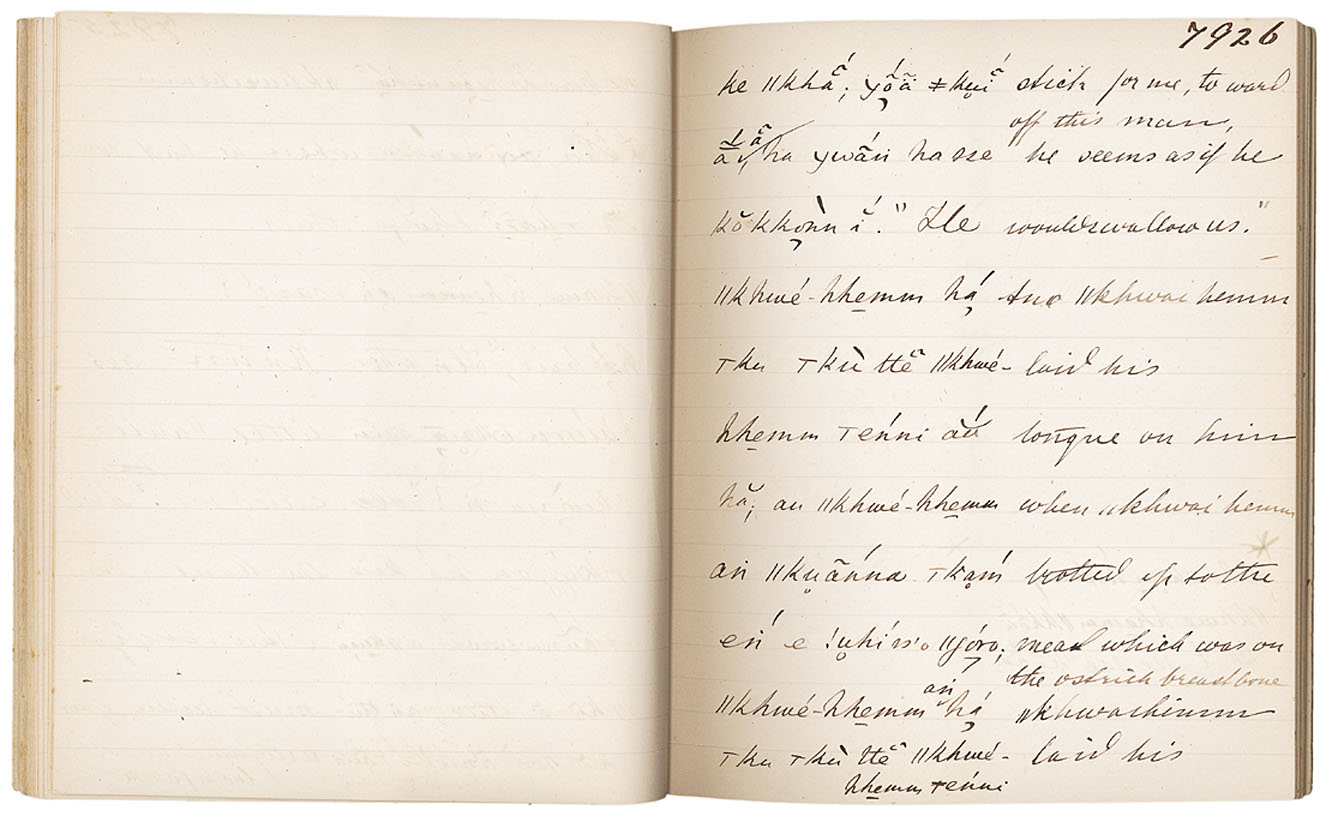 7926
ke ǁkhā́; yō̃ā ǂkụ̄í stick for me, to ward
off this man,
ha ywā́n ha sse he seems as if he
kŏkkọ̀nn ĭ́." He would swallow us."
ǁkhwé-hhe̱mm hạ́ And ǁkhwai hemm
тku тkù ttē̆ ǁkhwé- laid his
hhe̱mm тéńni āū́ tongue on him
hă; au ǁkhwé-hhe̱mm when ǁkhwai hemm
ań ǁkụā́nna тkạḿ trotted up to the
eń́ e !ụhí ss'o ǁgóro; meat which was on
the ostrich breastbone
ań
ǁkhwé-hhe̱mm hạ́ ǁkhwaihemm
тku тkù ttē̆ ǁkhwé- laid his
hhe̱mm тéńni